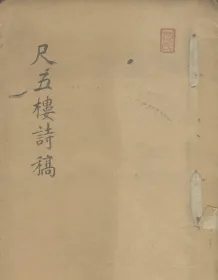 尺五樓詩稿